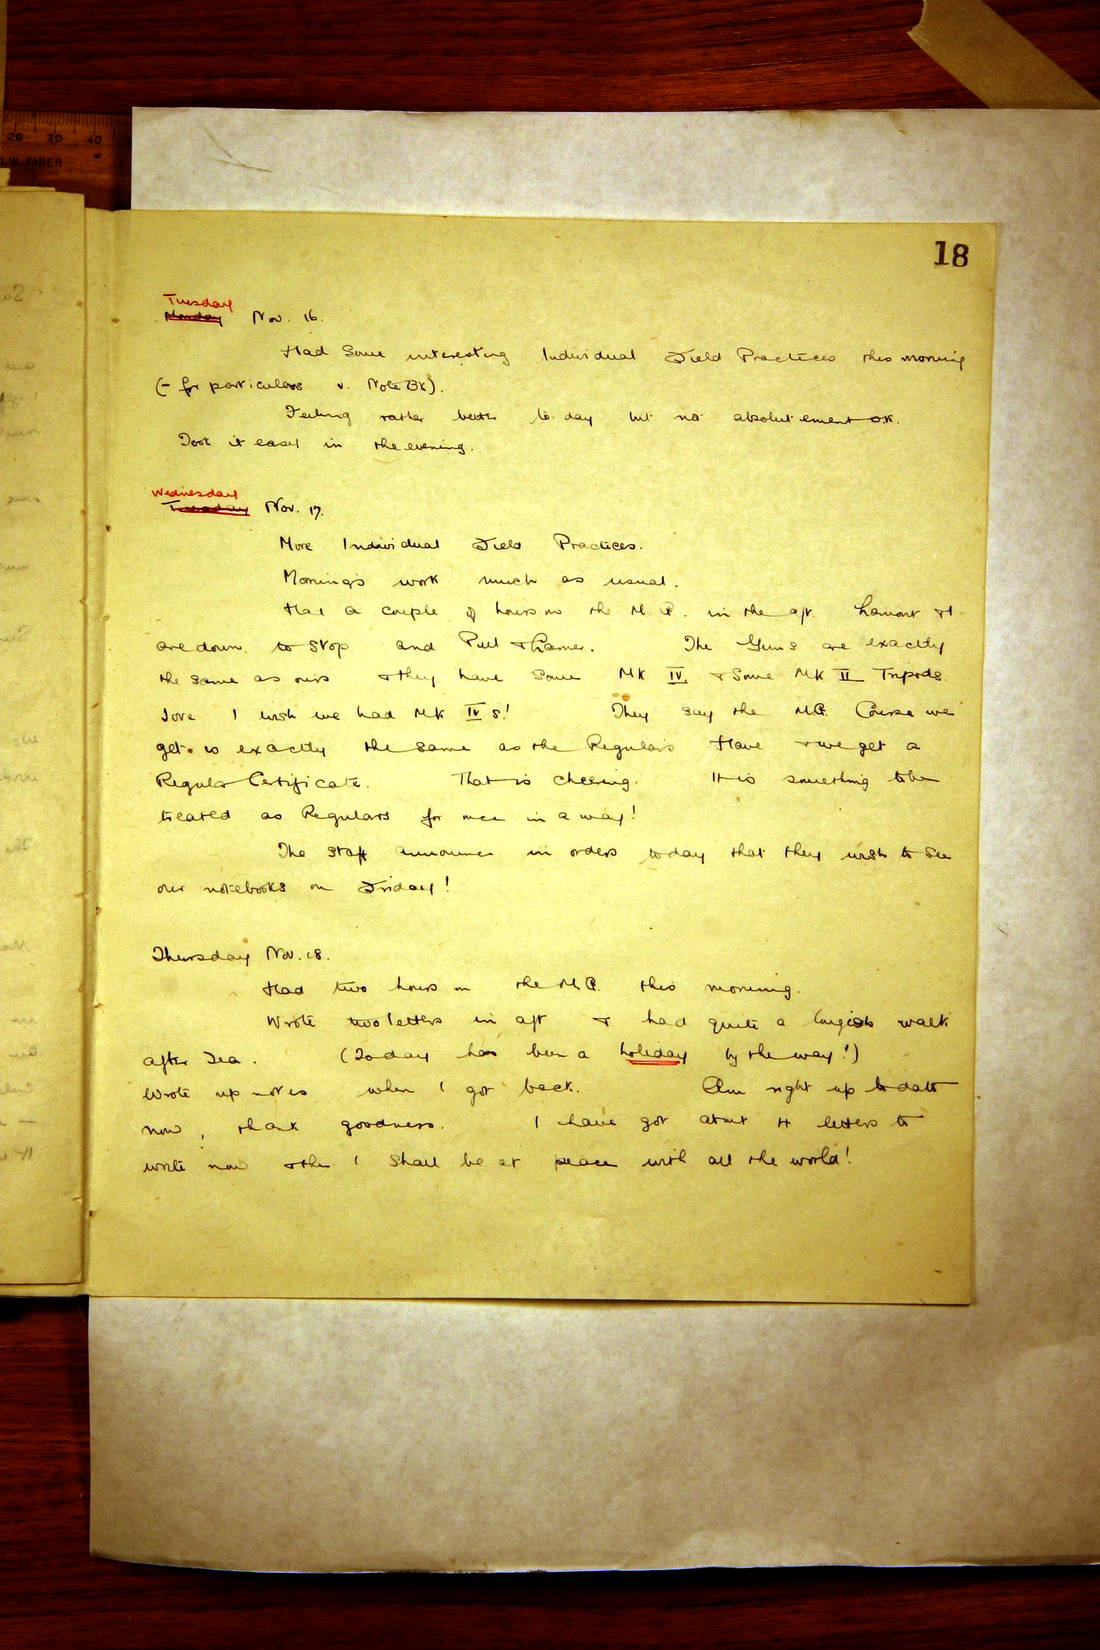 20 30 40
A.W. FABER
18
Tuesday
Monday Nov. 16.
Had Some interesting Individual Field Practices this morning
(- for particulars v. Note Bk).
Feeling rather better to day but not absolutement O.K.
Took it easy in the evening.
Wednesday
Tuesday Nov. 17.
More Individual Field Practices.
Morning's work much as usual.
Had a couple of hours on the M.G. in the aft. Lamont & I
are down to Stop and Pull & Hamer. The Guns are exactly
the same as ours & they have Some Mk IV & Some Mk II Tripods.
Jove I wish we had Mk IV s! They say the M.G. Course we
get is exactly the same as the Regulars Have & we get a
Regular Certificate. That is cheering. It is something to be
treated as Regulars for once in a way!
The Staff announce in orders today that they wish to See
our notebooks on Friday!
Thursday Nov. 18.
Had two hours on the M.G. this morning.
Wrote two letters in aft & had quite a longish walk
after Tea. (Today has been a holiday by the way!)
Wrote up notes when I got back. Am right up to date
now, thank goodness. I have got about 4 letters to
write now & then I Shall be at peace with all the world!